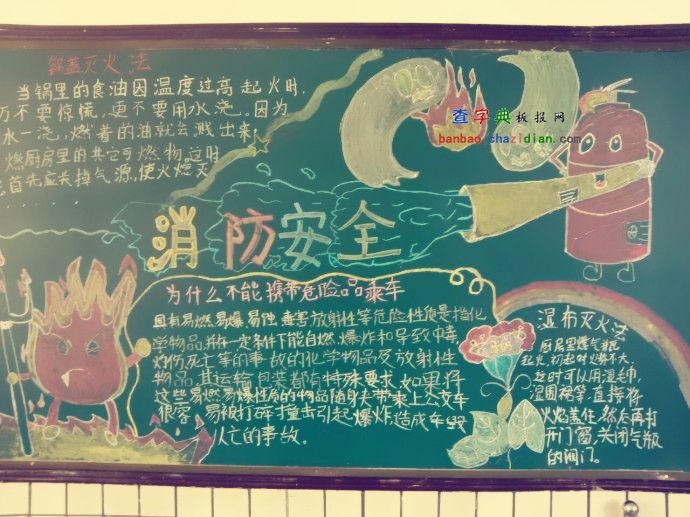 锅盖灭火法
当锅里的食油因温度过高起火时,
万不要惊慌,更不要用水浇。因为
水一浇,燃着的油就会溅出来,
燃厨房里的其它可燃物,这时
首先应关掉气源,使火熄灭
查字典板报网
banbao.chazidian.com
消防安全
为什么不能携带危险品乘车
具有易燃易爆、易蚀、毒害、放射性等危险性质是指化
学物品,并在一定条件下能自燃、爆炸和导致中毒,
灼伤死亡等的事故的化学物品及放射性
物品,其运输包装都有特殊要求,如果将
这些易燃易爆性质的物品随身夫带乘上公交车
很容易被打碎撞击引起爆炸造成车毁
人亡的事故。
湿布灭火法
厨房里煤气
起火,初起时火势不大,
这时可以用湿毛巾,
湿围裙等,直接将
火焰盖住,然后再打
开门窗,关闭气瓶
的阀门。